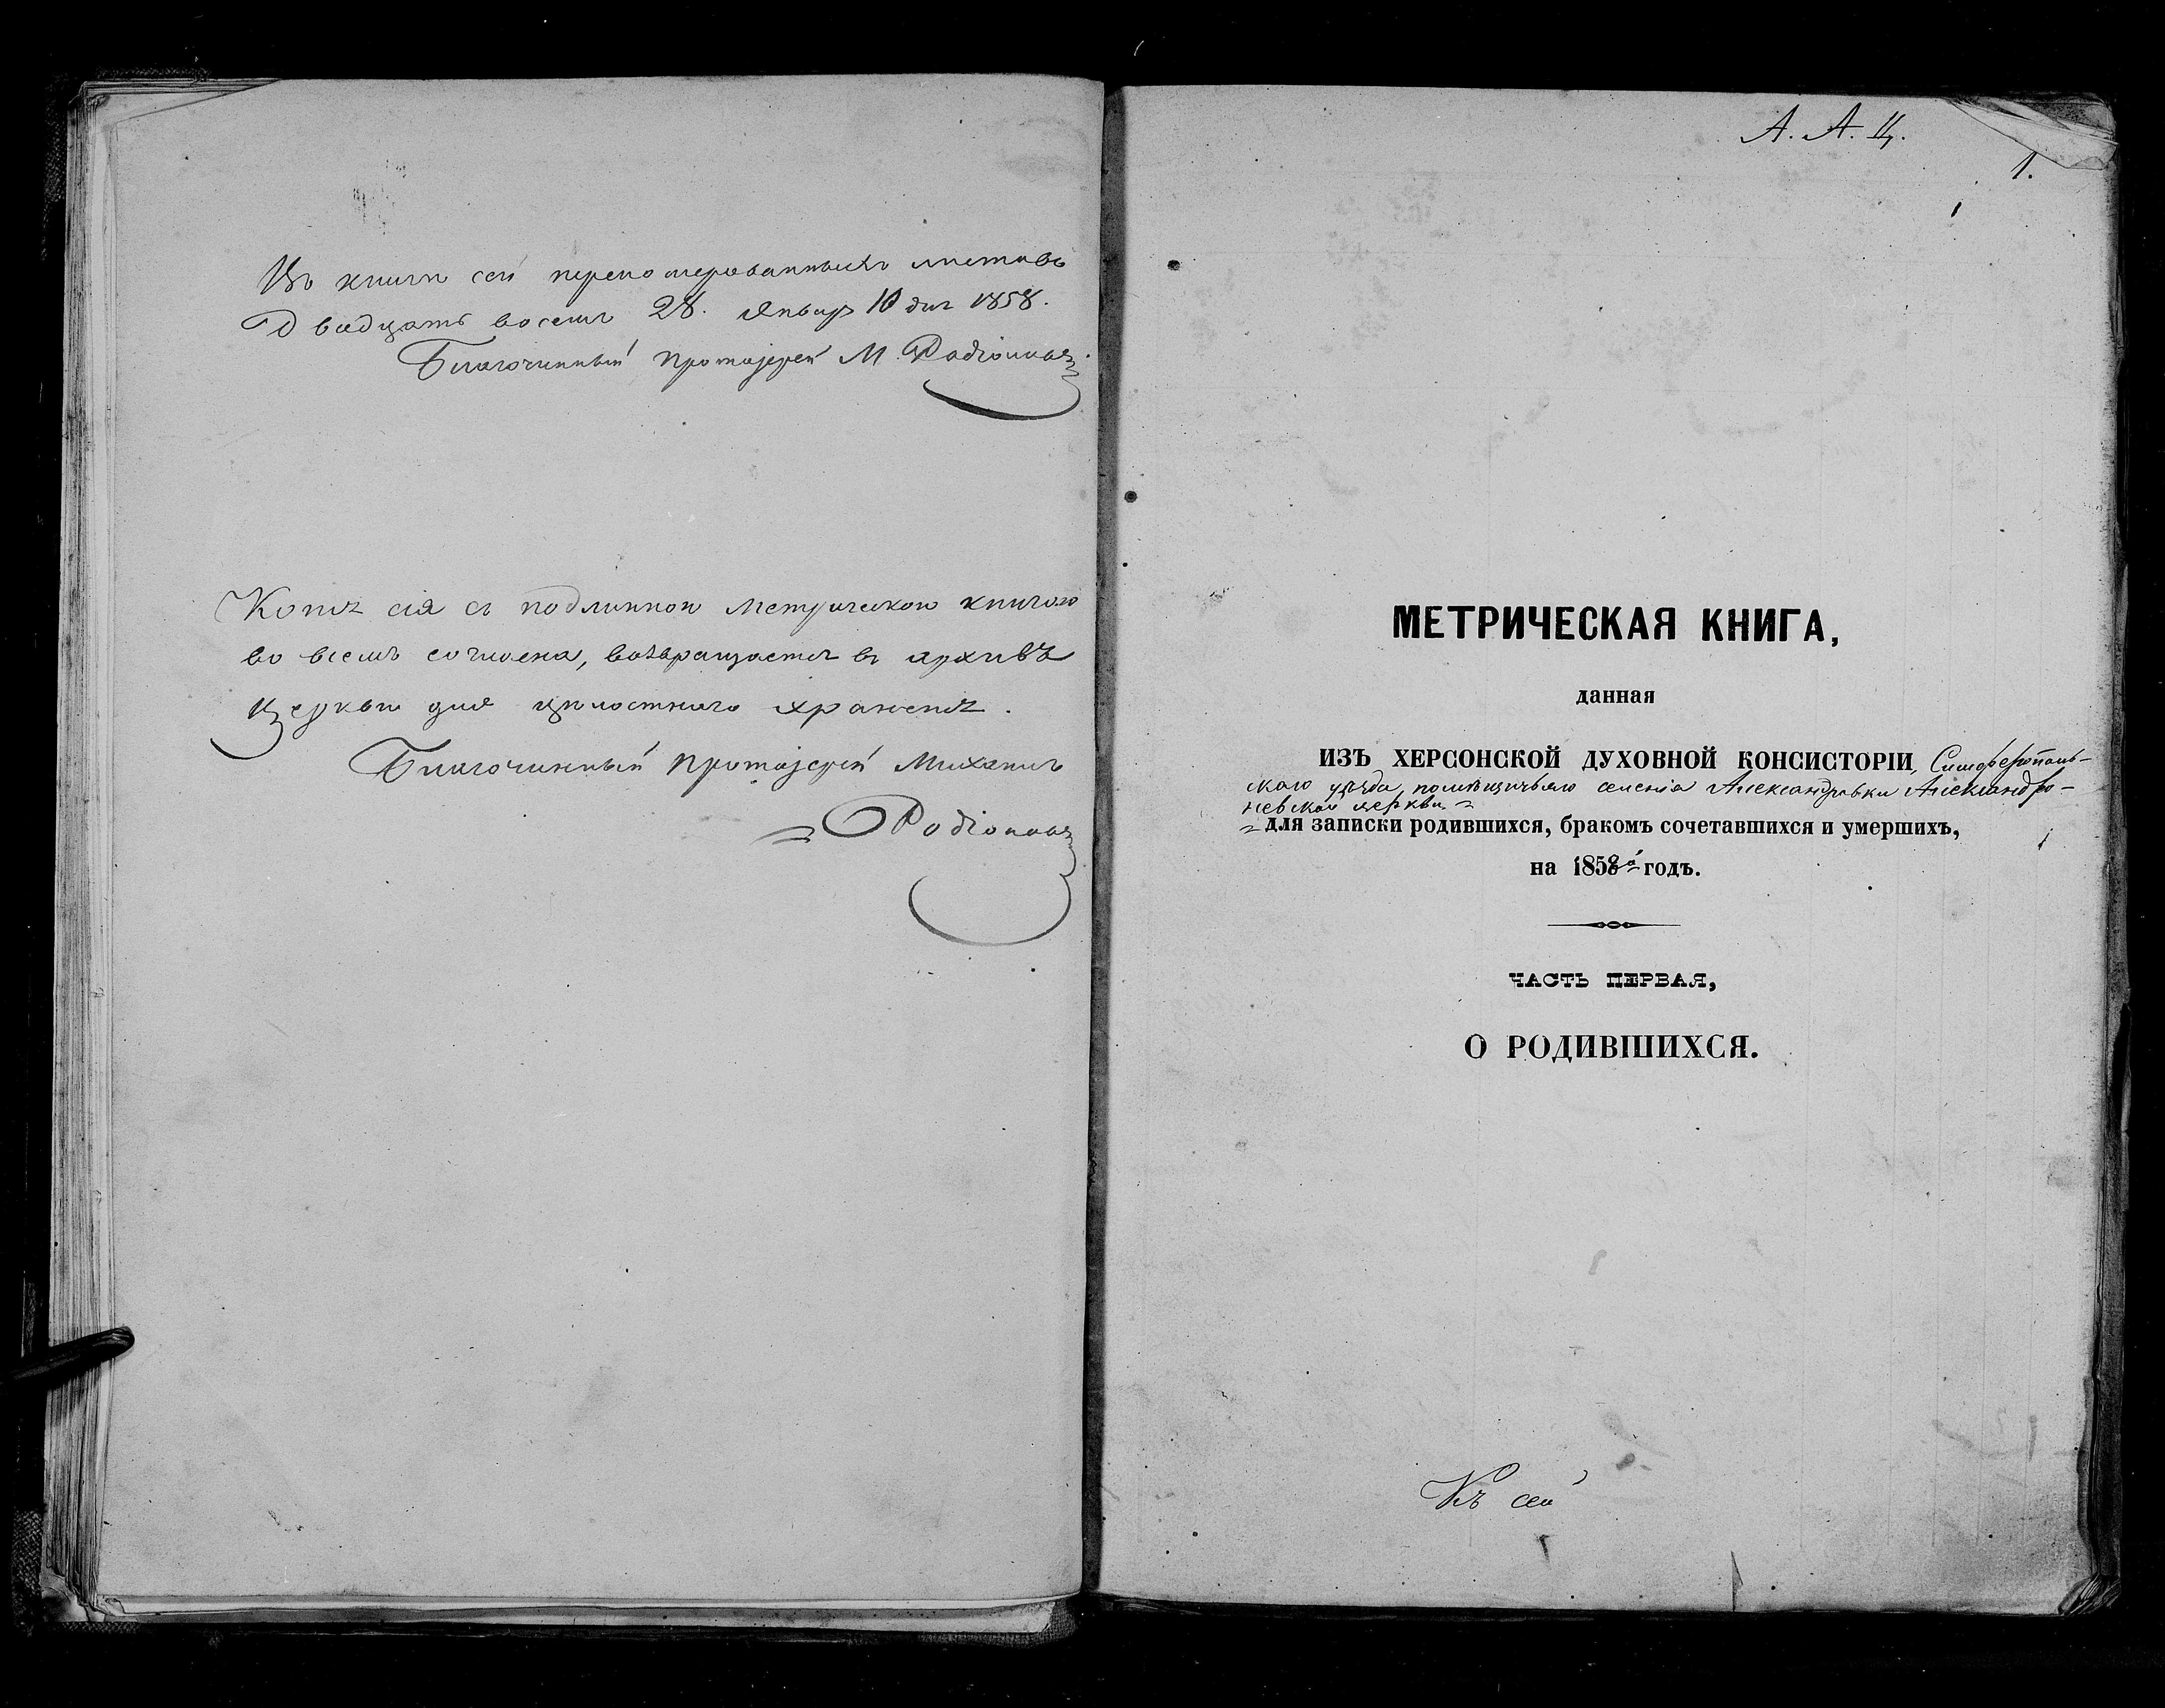 Въ книги сей перепомерованныхъ листовъ
Двадцать восемь 28. Январ 10 дня 1858.
Благочинный Протоіерей М. Родіоновъ
Копія сія съ подлинною метрическою книгою
во всемъ согласна, возвращается въ архивъ
Церкви для цѣлостнаго храненія.
Благочинный Протоіерей Михаилъ
Родіоновъ
А. А. Ц.
1.
МЕТРИЧЕСКАЯ КНИГА,
данная
ИЗЪ ХЕРСОНСКОЙ ДУХОВНОЙ КОНСИСТОРІИ, Симферополь-
скаго уѣзда, помѣщичьяго селенія Александровки Александро-
невской церкви
для записки родившихся, бракомъ сочетавшихся и умершихъ,
на 1858й годъ.
ЧАСТЬ ПЕРВАЯ,
О РОДИВШИХСЯ.
Къ сей